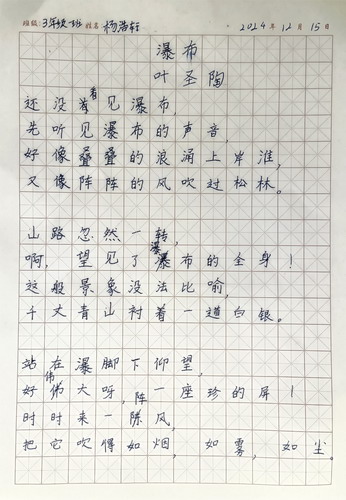 班级:3年级一班 姓名 杨浩轩 2024年12月15日
瀑布
叶圣陶
还没看见瀑布,
先听见瀑布的声音,
好像叠叠的浪涌上岸淮,
又像阵阵的风吹过松林。
山路忽然一转,
啊,望见了瀑布的全身!
这般景象没法比喻,
千丈青山衬着一道白银。
站在瀑脚下仰望,
好伟大呀,一座珍的屏!
时时来一阵风,
把它吹得如烟,如雾,如尘。